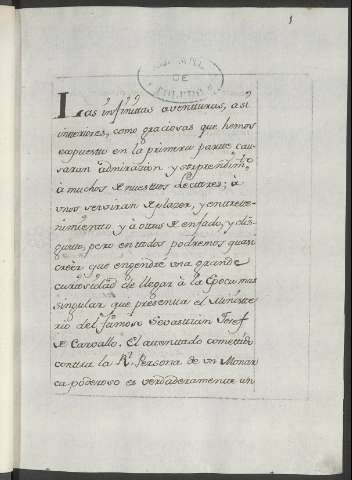 1
DE
TOLEDO
Las infinitas aventuras, asi
interiores, como graciosas que hemos
expuesto en la primera parte cau-
saran admirasión, y
à muchos de nuestros Lectores; à
unos serviran de plazer, y entrete-
nimiento, y à otros de enfado, y dis-
gusto, pero en todos podremos quasi
creèr que engendrè una grande
curiosidad de llegar à la Epoca mas
singular que presenta el Ministe-
rio del famoso Sevastián Josef
de Carvallo. El atentado cometido
contra la Rl. Persona de un Monar
ca poderoso es verdaderamente un